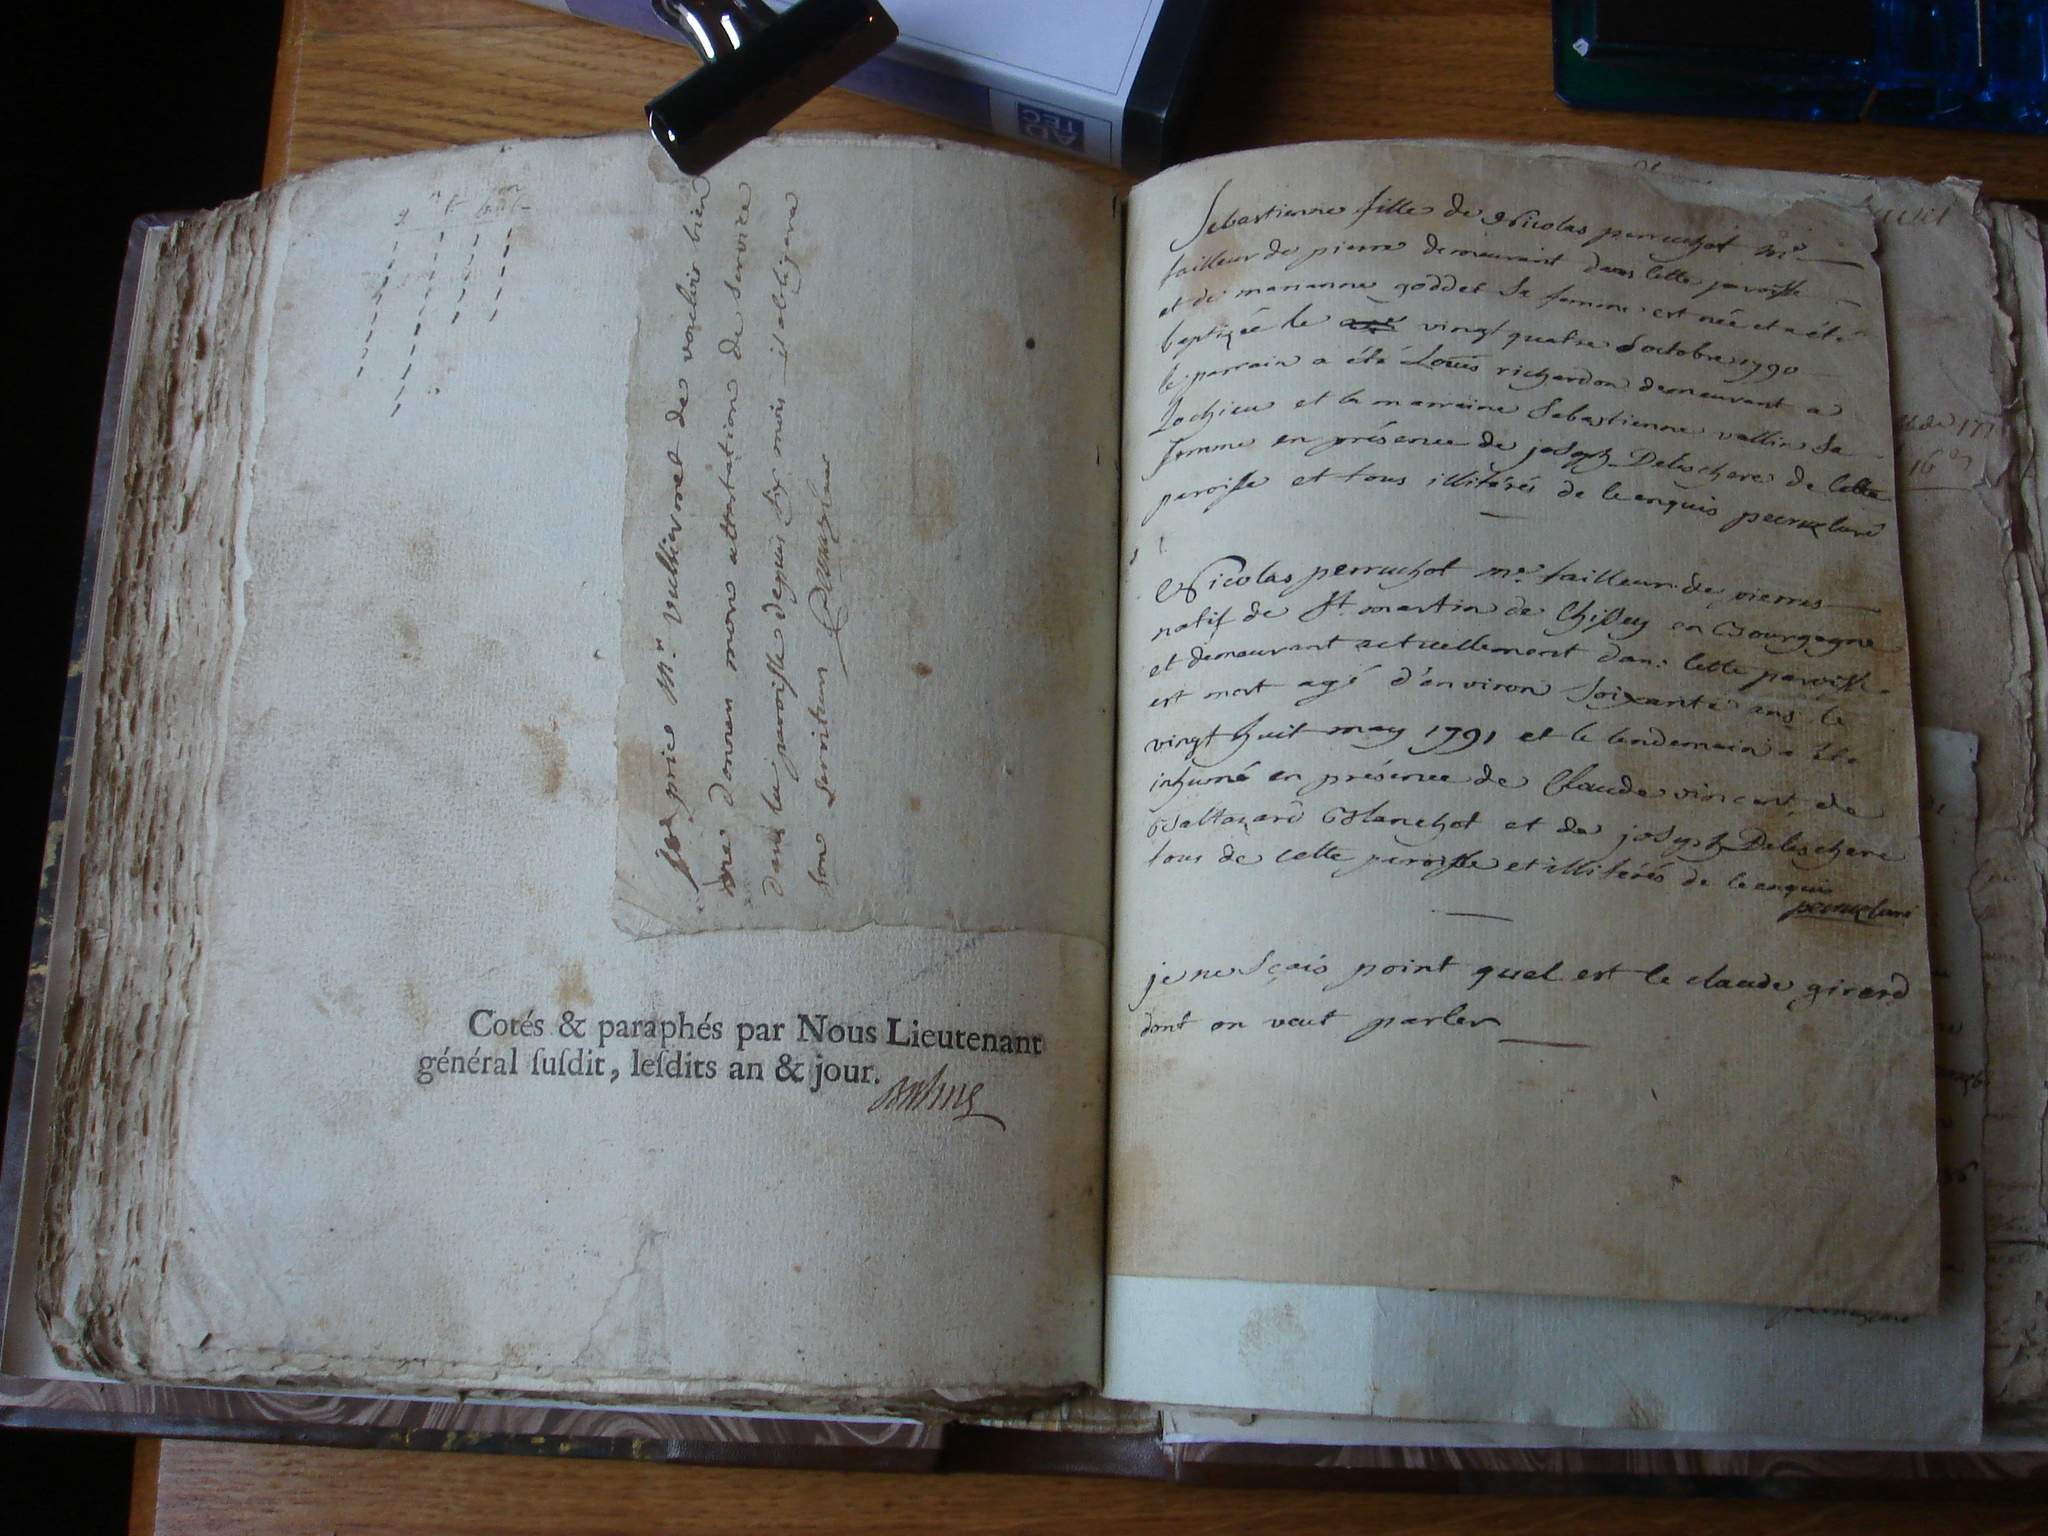 je prie Mr. vulliermet de vouloir bien
me donner mon attestation de service
dans la paroisse depuis six mois il obligera
son serviteur
Cotés & paraphés par Nous Lieutenant
général susdit, lesdits an & jour.
Sebastienne fille de Nicolas perruchot me
tailleur de pierre demeurant dans cette paroisse
et de marianne goddet sa femme est née et a été
baptizée le vingt quatre octobre 1790
le parrain a été Louis richardon demeurant a
Lochieu et la marraine Sebastienne vallin sa
femme en présence de joseph Delaschere de cette
paroisse et tous illitérés de ce enquis
Nicolas perruchot me. tailleur de pierres
natif de St. martin de Chissey en Bourgogne
et demeurant actuellement dans cette paroisse
est mort agé d'environ soixante ans le
vingt huit may 1791 et le lendemain a été
inhumé en présence de Claude vincent, de
Baltazard Blanchot et de joseph Delaschere
tous de cette paroisse et illitérés de ce enquis
je ne sçais point quel est le claude girard
dont on veut parler
AD
TEC